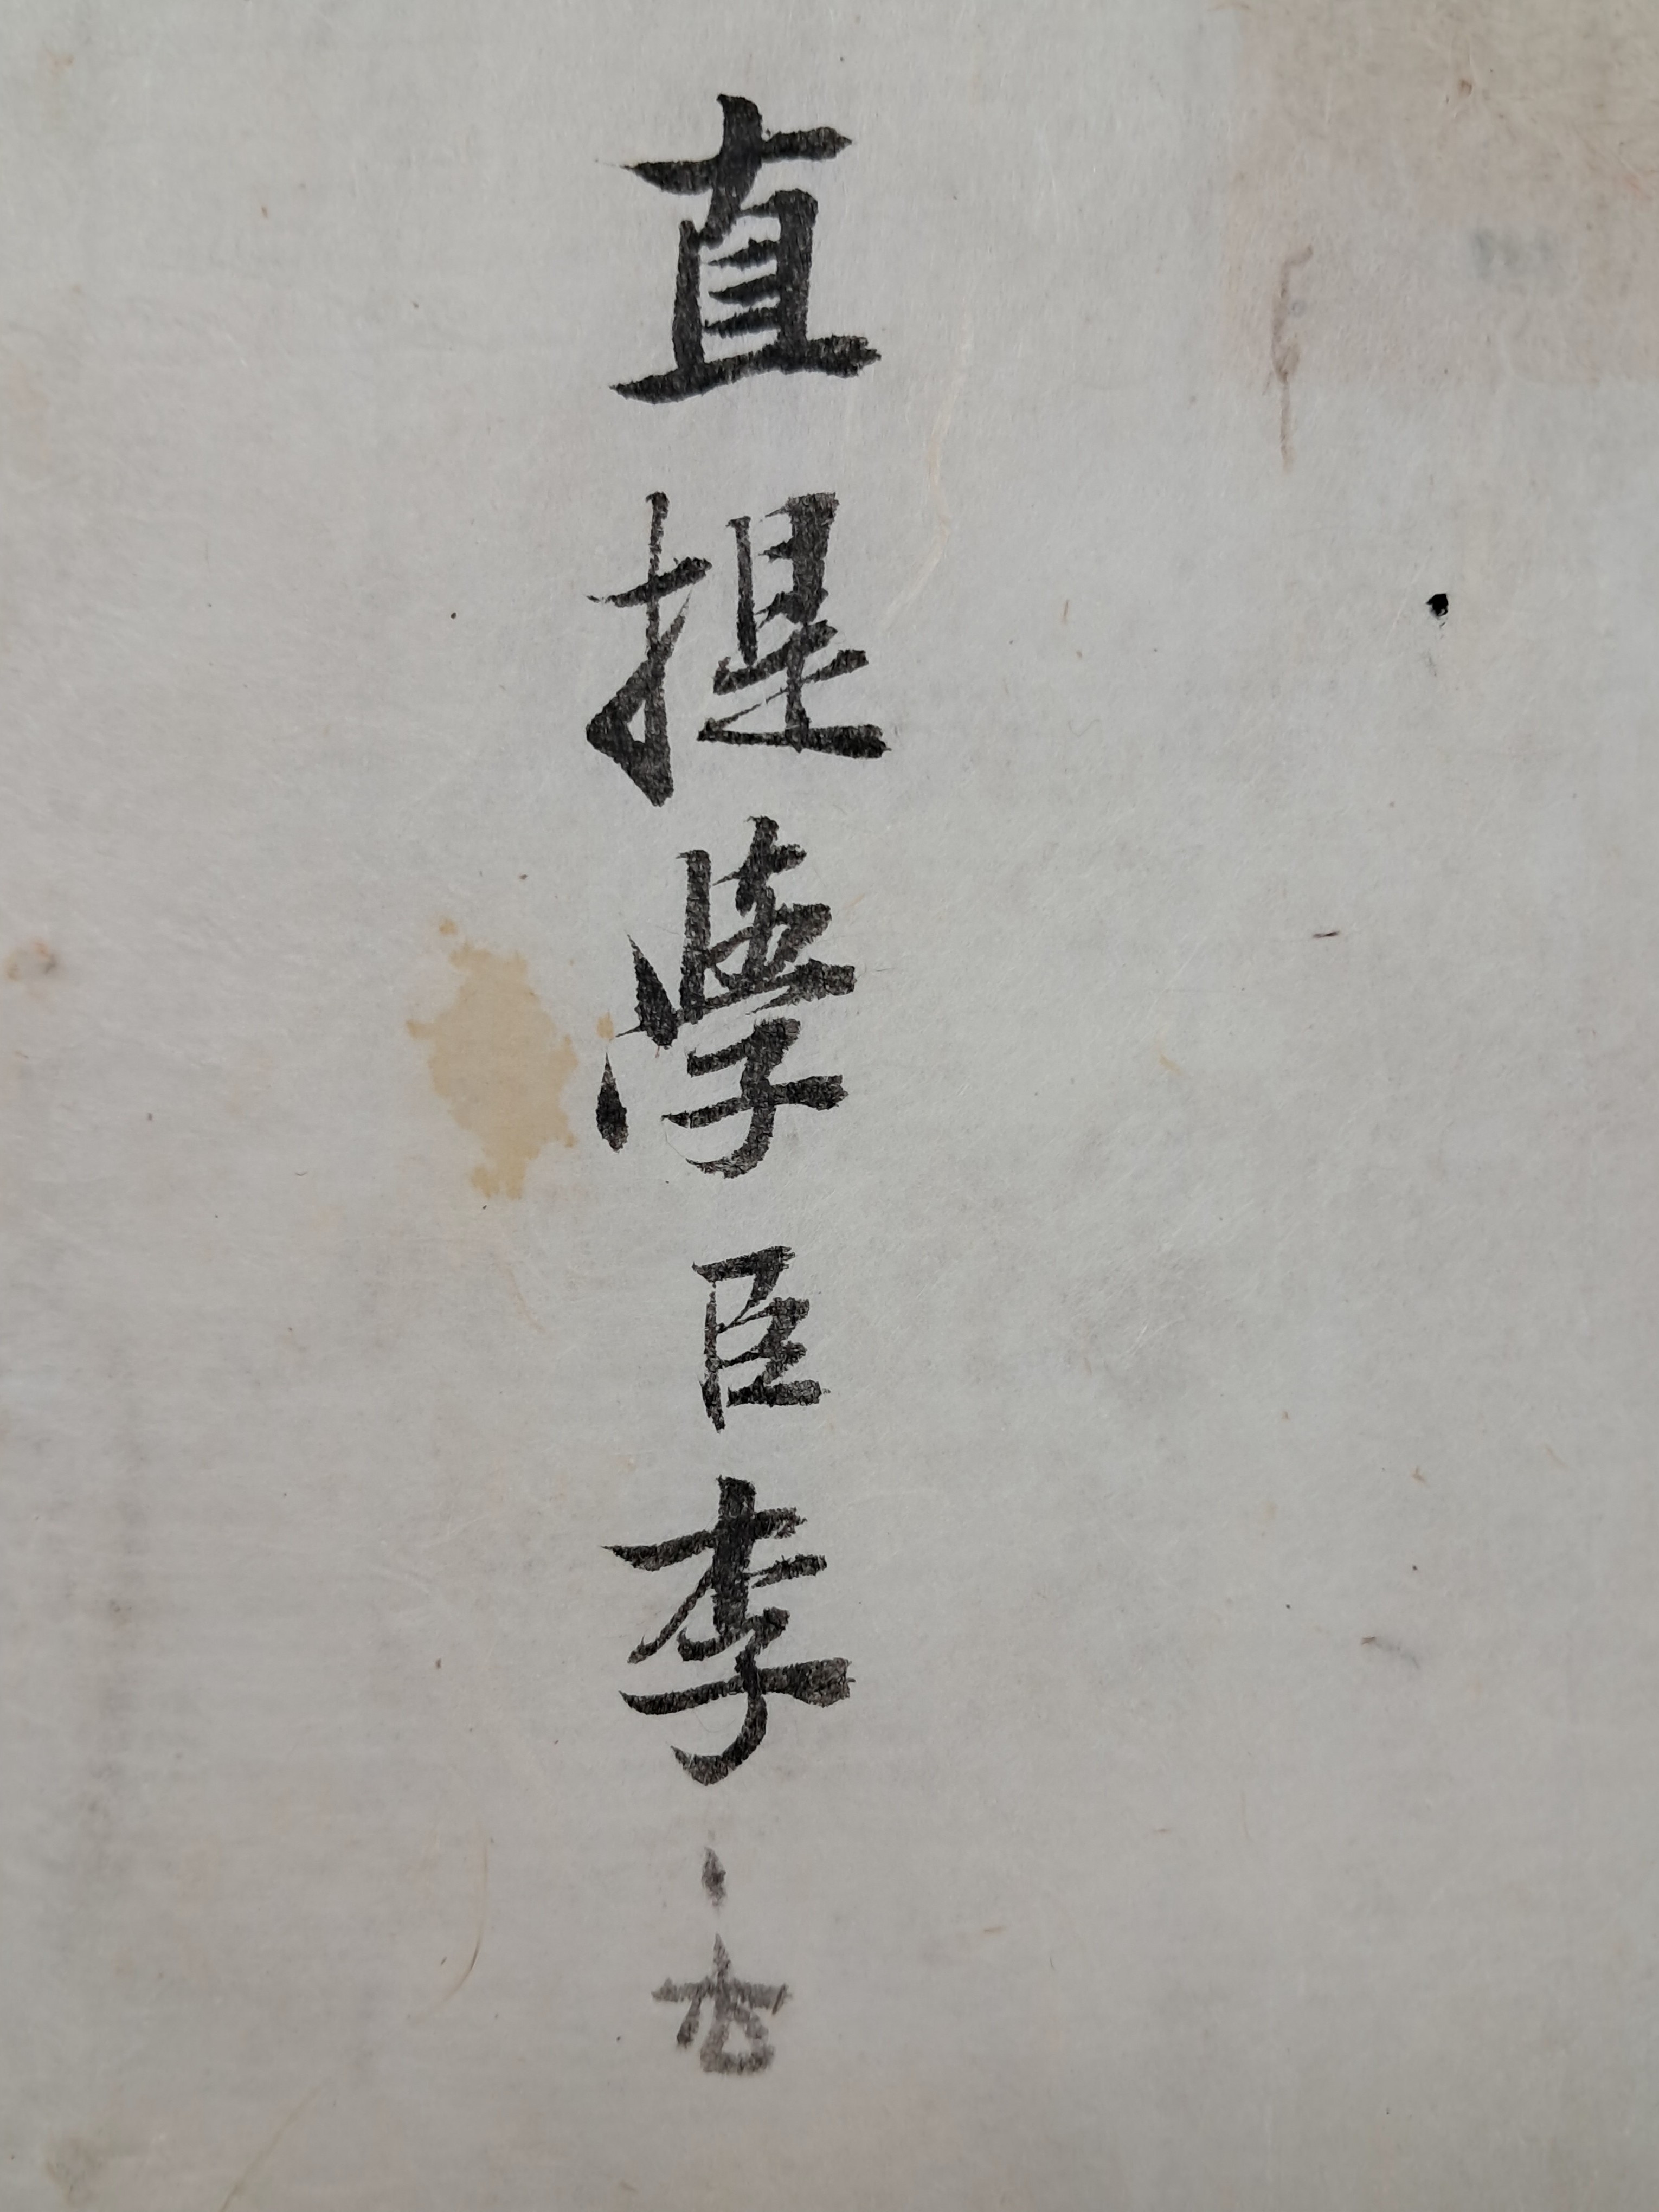 直提學臣李